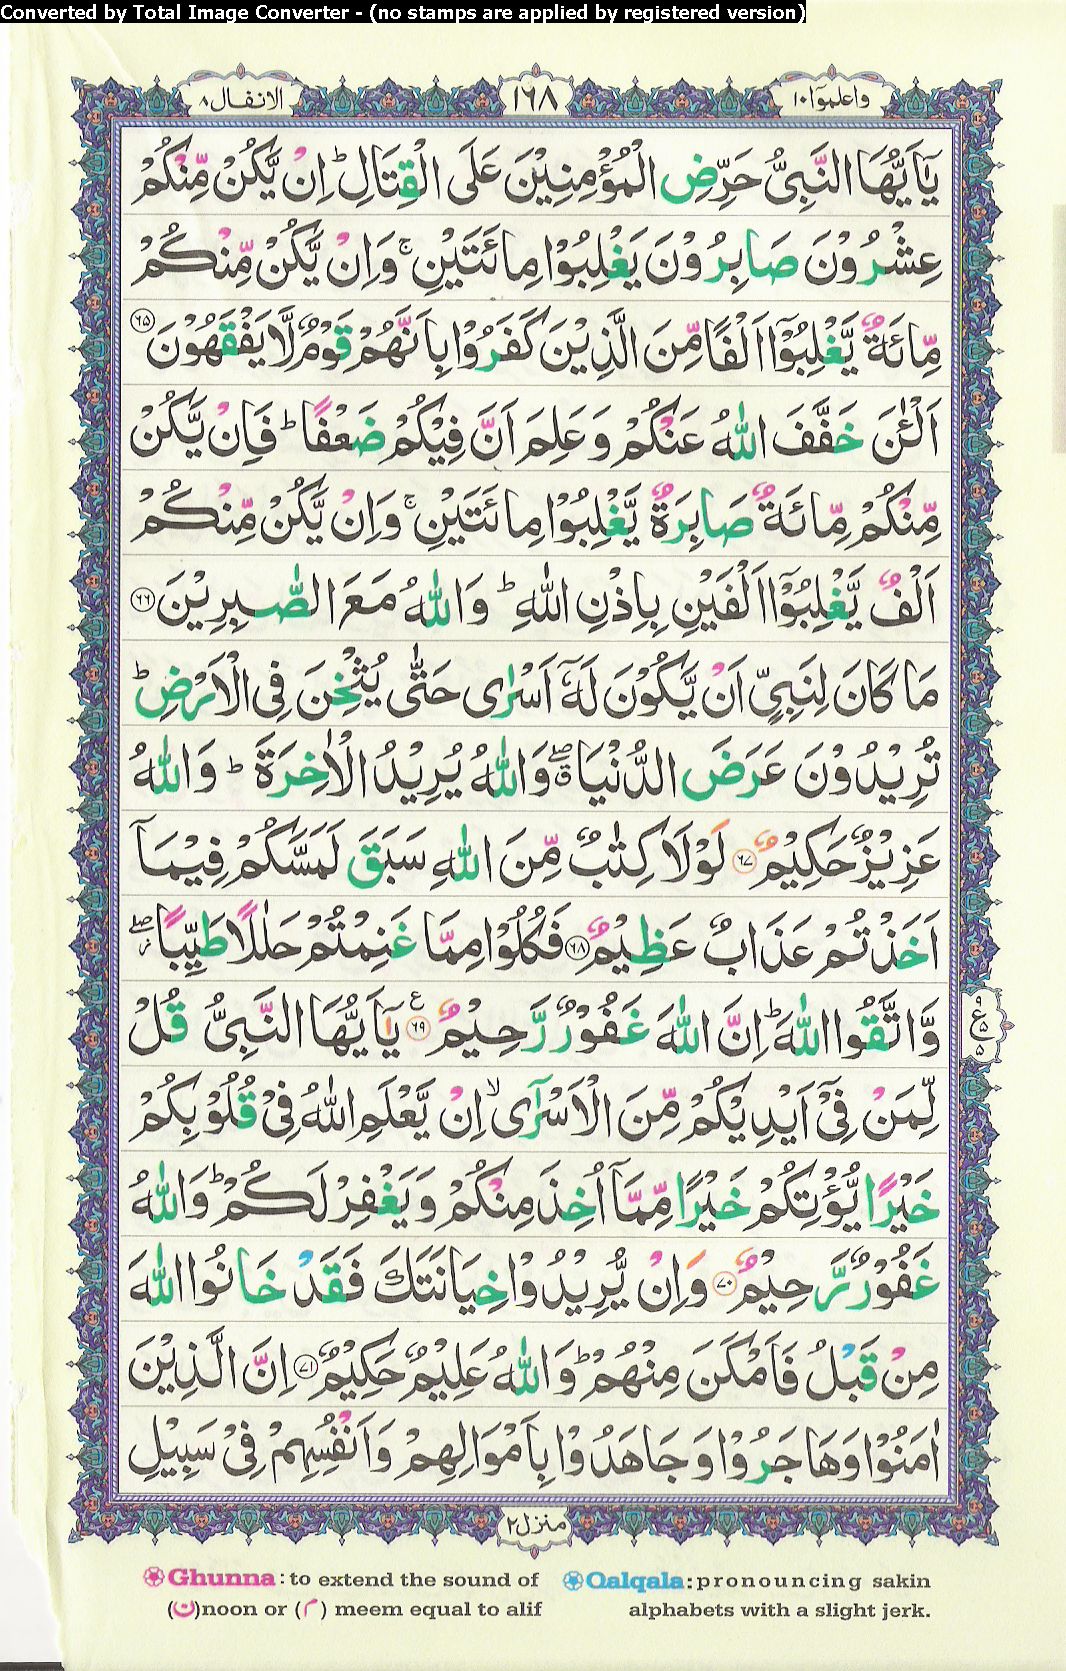 Converted by Total Image Converter - (no stamps are applied by registered version)
واعلموٓا ١٠ ١٦٨ الانفال ٨
يٰٓاَيُّهَا النَّبِىُّ حَرِّضِ الْمُؤْمِنِيْنَ عَلَى الْقِتَالِ ؕ اِنْ يَّكُنْ مِّنْكُمْ
عِشْرُوْنَ صَابِرُوْنَ يَغْلِبُوْا مِائَتَيْنِ ۚ وَاِنْ يَّكُنْ مِّنْكُمْ
مِّائَةٌ يَّغْلِبُوْۤا اَلْفًا مِّنَ الَّذِيْنَ كَفَرُوْا بِاَنَّهُمْ قَوْمٌ لَّا يَفْقَهُوْنَ ۶۵
اَلْـٰٔنَ خَفَّفَ اللّٰهُ عَنْكُمْ وَعَلِمَ اَنَّ فِيْكُمْ ضَعْفًا ؕ فَاِنْ يَّكُنْ
مِّنْكُمْ مِّائَةٌ صَابِرَةٌ يَّغْلِبُوْا مِائَتَيْنِ ۚ وَاِنْ يَّكُنْ مِّنْكُمْ
اَلْفٌ يَّغْلِبُوْۤا اَلْفَيْنِ بِاِذْنِ اللّٰهِ ؕ وَاللّٰهُ مَعَ الصّٰبِرِيْنَ ۶۶
مَا كَانَ لِنَبِىٍّ اَنْ يَّكُوْنَ لَهٗۤ اَسْرٰى حَتّٰى يُثْخِنَ فِى الْاَرْضِ ؕ
تُرِيْدُوْنَ عَرَضَ الدُّنْيَا ۖۗ وَاللّٰهُ يُرِيْدُ الْاٰخِرَةَ ؕ وَاللّٰهُ
عَزِيْزٌ حَكِيْمٌ ۶۷ لَوْلَا كِتٰبٌ مِّنَ اللّٰهِ سَبَقَ لَمَسَّكُمْ فِيْمَاۤ
اَخَذْتُمْ عَذَابٌ عَظِيْمٌ ۶۸ فَكُلُوْا مِمَّا غَنِمْتُمْ حَلٰلًا طَيِّبًا ۖ
وَّاتَّقُوا اللّٰهَ ؕ اِنَّ اللّٰهَ غَفُوْرٌ رَّحِيْمٌ ۶۹ ع يٰۤاَيُّهَا النَّبِىُّ قُلْ
ع ۹ ۵ ۵
لِّمَنْ فِىْۤ اَيْدِيْكُمْ مِّنَ الْاَسْرٰٓى ۙ اِنْ يَّعْلَمِ اللّٰهُ فِىْ قُلُوْبِكُمْ
خَيْرًا يُّؤْتِكُمْ خَيْرًا مِّمَّاۤ اُخِذَ مِنْكُمْ وَيَغْفِرْ لَكُمْ ؕ وَاللّٰهُ
غَفُوْرٌ رَّحِيْمٌ ۷۰ وَاِنْ يُّرِيْدُوْا خِيَانَتَكَ فَقَدْ خَانُوا اللّٰهَ
مِنْ قَبْلُ فَاَمْكَنَ مِنْهُمْ ؕ وَاللّٰهُ عَلِيْمٌ حَكِيْمٌ ۷۱ اِنَّ الَّذِيْنَ
اٰمَنُوْا وَهَاجَرُوْا وَجَاهَدُوْا بِاَمْوَالِهِمْ وَاَنْفُسِهِمْ فِىْ سَبِيْلِ
منزل ٢
Ghunna: to extend the sound of
(ن)noon or (م) meem equal to alif
Qalqala: pronouncing sakin
alphabets with a slight jerk.